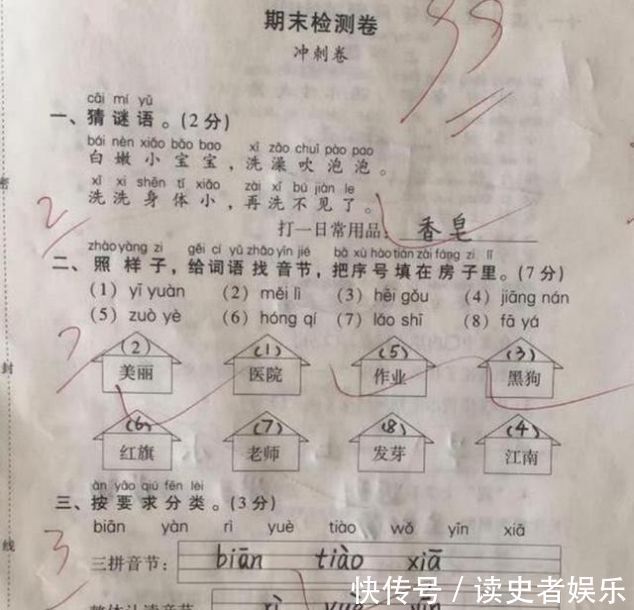 期末检测卷
99
冲刺卷
cāi mí yǔ
一、猜谜语。(2分)
bái nèn xiǎo bǎo bao xǐ zǎo chuī pào pao
白嫩小宝宝,洗澡吹泡泡。
xǐ xi shēn tǐ xiǎo zài xǐ bú jiàn le
洗洗身体小,再洗不见了。
2
打一日常用品:香皂
zhào yàng zi gěi cí yǔ zhǎo yīn jié bǎ xù hào tián zài fáng zi lǐ
二、照样子,给词语找音节,把序号填在房子里。(7分)
(1) yī yuàn (2) měi lì (3) hēi gǒu (4) jiāng nán
(5) zuò yè (6) hóng qí (7) lǎo shī (8) fā yá
7
(2) (1) (5) (3)
美丽 医院 作业 黑狗
(6) (7) (8) (4)
红旗 老师 发芽 江南
àn yāo qiú fēn lèi
三、按要求分类。(3分)
biān yàn rì yuè tiào wǒ yīn xiā
3
三拼音节: biān tiào xiā
整体认读音节 rì yuè yīn
密
封
线
快传号 / 读史者娱乐